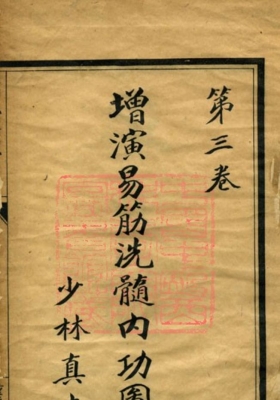 第三卷
增演易筋洗髓內功圖
少林真